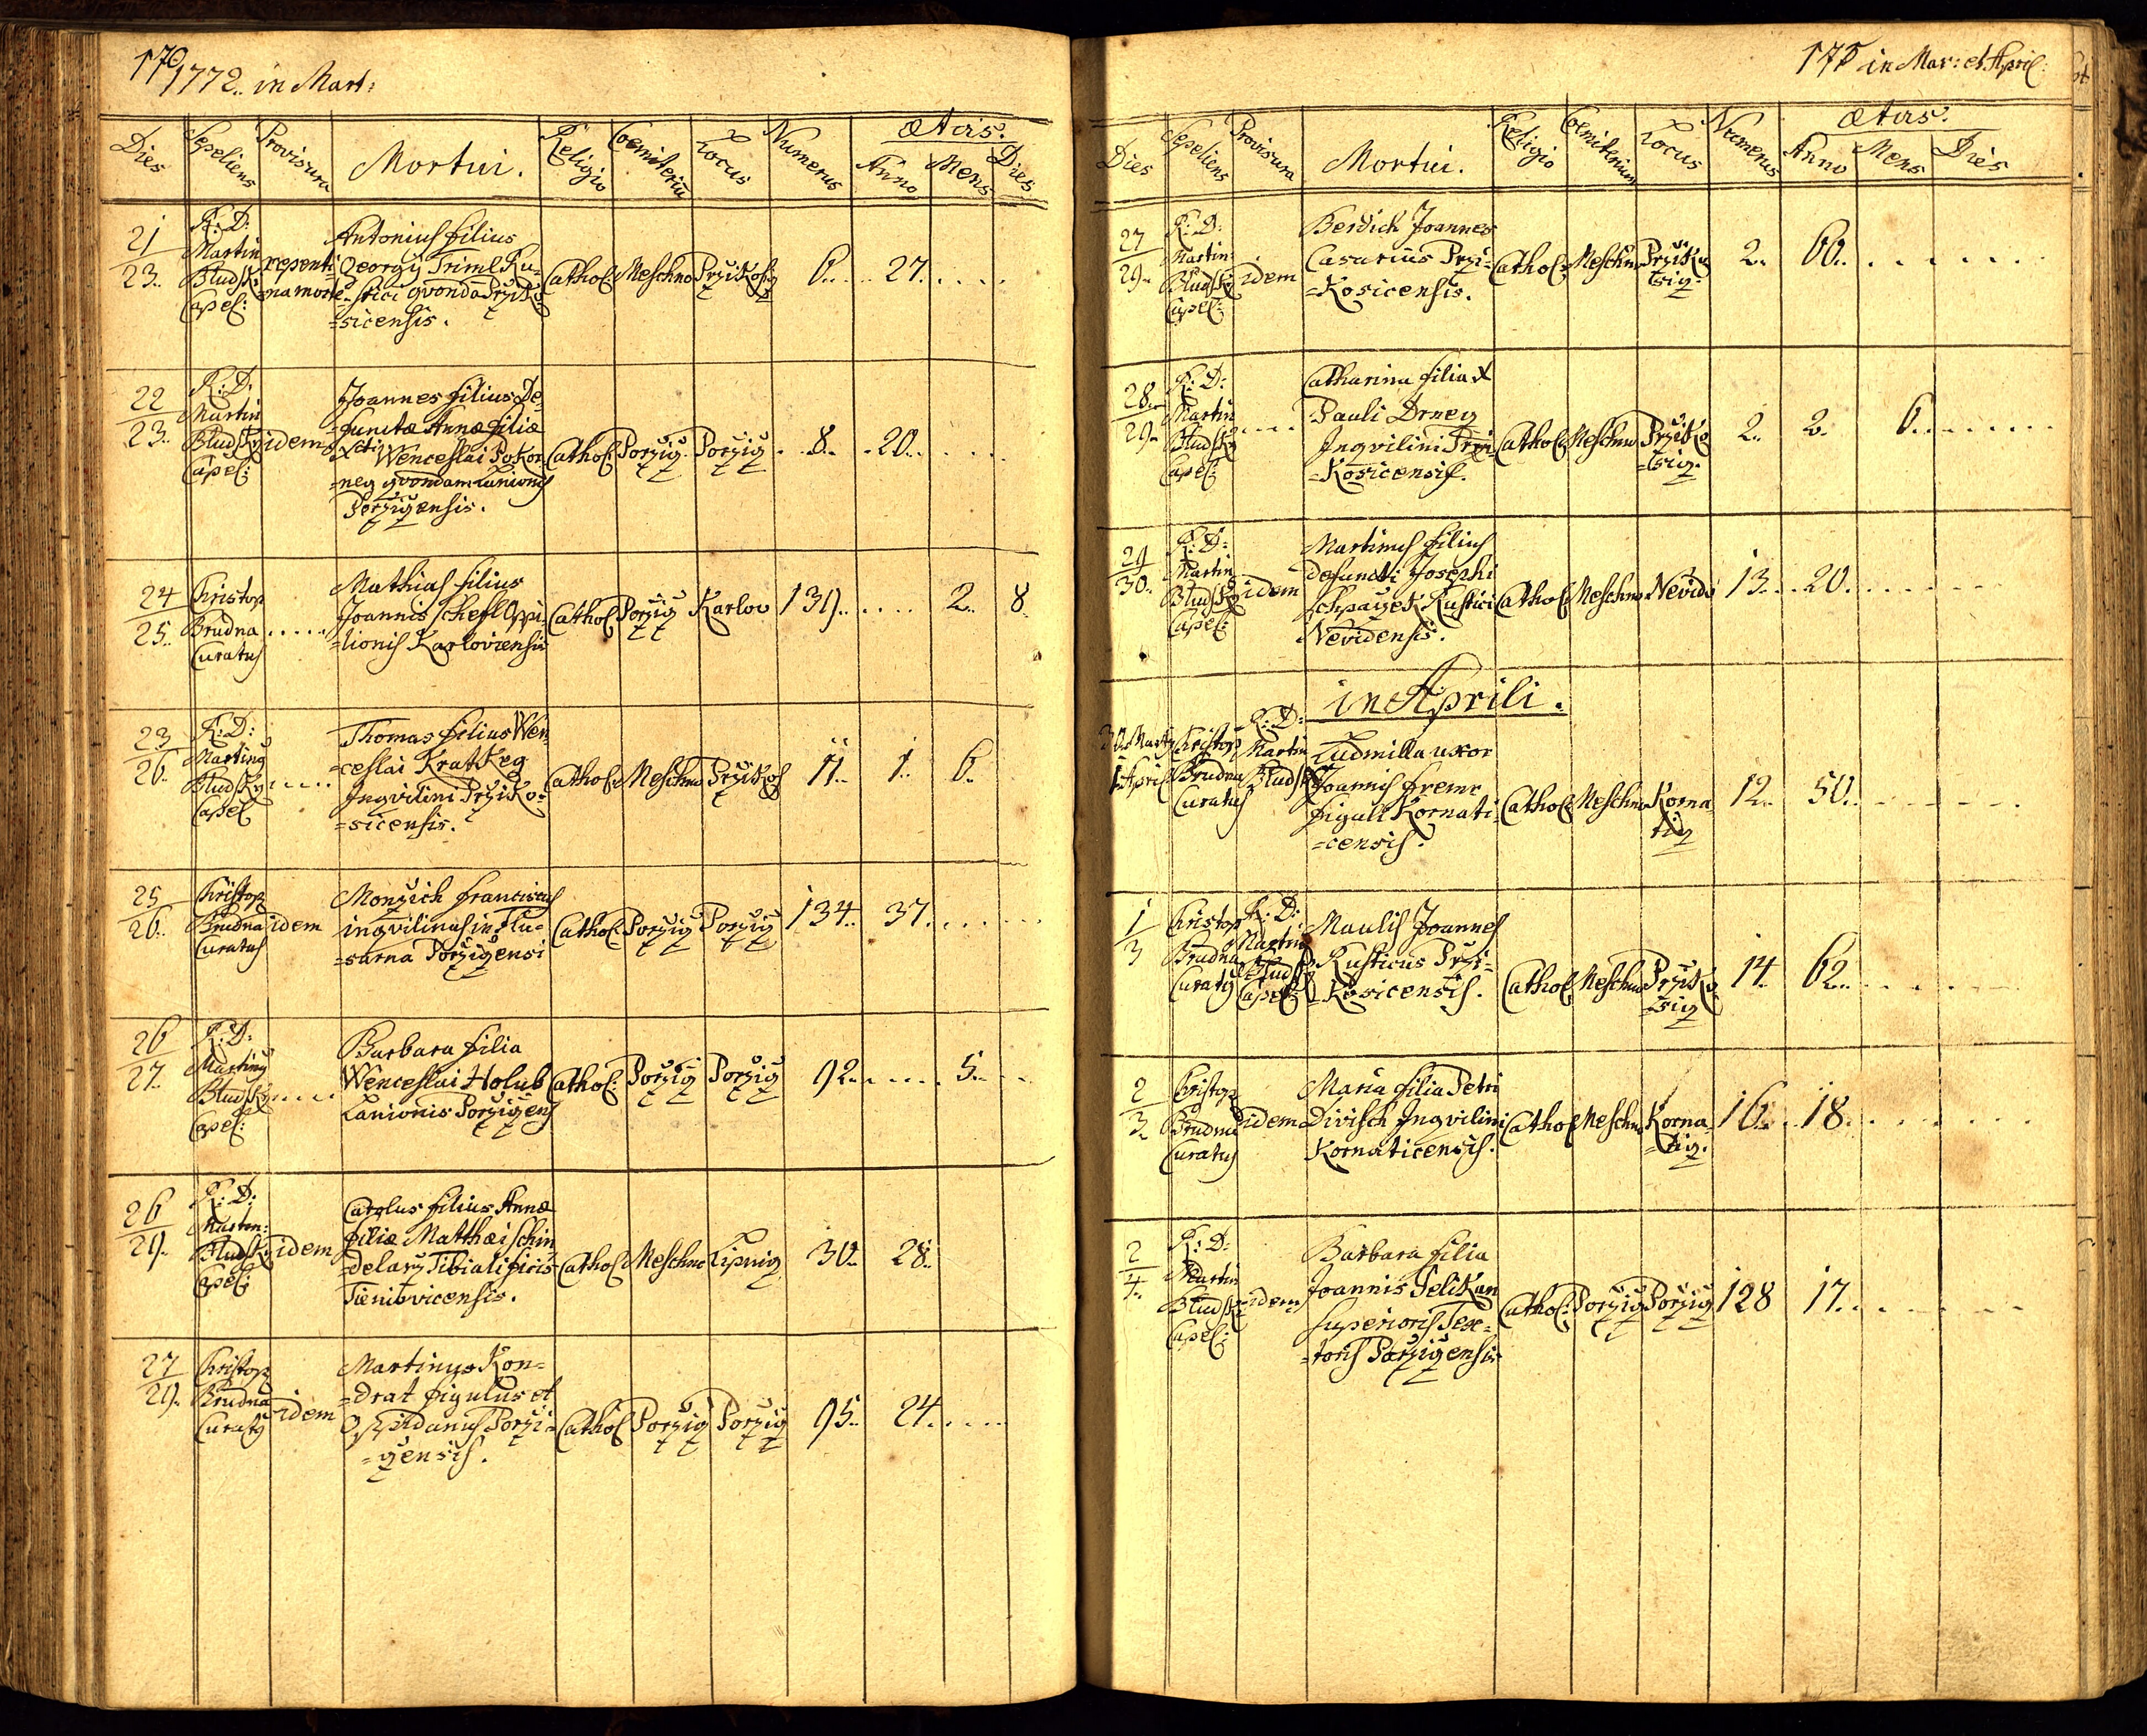 170
1772. in Mart:
Dies Sepeliens Provisura Mortui. Religio Coemiteriū Locus Numerus Ætas. Anno Mens Dies
21 23. R: D: Martin Bludsky Capel: repenti- na morte Antonius filius
Georgy Triml Ru-
-stici qvonda Prziko-
=sicensis. Cathol: Meschno Przikosig 6. 27.
22 23. R: D: Martin Bludsky Capel: idem Joannes filius De-
functæ Annæ filiæ
Wenceslai Pokor
=neg qvondam Lanionis
Porzigensis. Cathol: Porzig Porzig 8. 20.
24 25. Christop Brudna Curatus Mathias filius
Joannis Schefl Oppi
=lionis Karloviensis Cathol Porzig Karlov 139. 2. 8
23 26. R: D: Martinq Bludsky Capel Thomas filius Wen
=ceslai Kratkeg
Inqvilini Prziko-
=sicensis. Cathol: Meschno Przikos 11. 1. 6.
25 26. Christop Brudna Curatus idem Monzich Franciscus
inqvilinus in Flu-
=sarna Porzigensi Cathol Porzig Porzig 134. 37.
26 27. R: D: Martinq Bludsky Capel: Barbara filia
Wenceslai Holub
Lanionis Porzigens Cathol: Porzig Porzig 92. 5.
26 29. R: D: Martin: Bludsky Capel: idem Carolus filius Annæ
filiæ Matthæi Schin
=delarz Tibialificis
Cathol Meschno Lipnig 30. 28.
27 29. Christop Brudna Curatq idem Martinus Kon=
=drat figulus et
Oppidanus Porzi=
=gensis. Cathol Porzig Porzig 95. 24.
171 in Mar: et April:
Dies Sepeliens Provisura Mortui. Religio Coemiterium Locus Numerus Ætas. Anno Mens Dies
27 29. R: D: Martin Bludsky Capel: idem Berdich Joannes
Casarius Przi-
=Kosicensis. Cathol: Meschno Przikotsig. 2. 60.
28. 29. R: D: Martin Bludsky Capel: Catharina filia
Pauli Drneg
Inqvilini Przi
=Kosicensis. Cathol Meschno Przikotsig. 2. 2. 6.
29 30. R: D: Martin Bludsky Capel: idem Martinus filius
defuncti Josephi
Schpaczek Rustici
Nevidensis. Cathol Meschno Nevid 13. 20.
in Aprili.
30. Marty 1. April Christop Brudna Curatus R: D: Martin Bludsky Ludmilla uxor
Joannis Fremr
figuli Kornati
=censis. Cathol Meschno Kornatig 12. 50.
1 3 Christop Brudna Curatq R: D: Martin Bludsky Capel: Maulis Joannes
Rusticus Przi=
=Kosicensis. Cathol Meschno Przikotsig 14. 62.
2 3. Christop Brudna Curatus idem Maria filia Petri
Divisch Inqvilini
Kornaticensis. Cathol Meschno Kornatig. 16. 18.
2 4. R: D: Martin Bludsky Capel: idem Barbara filia
Joannis Pelikan
superioris Tex=
=toris Porzigensis Cathol: Porzig Porzig 128 17.